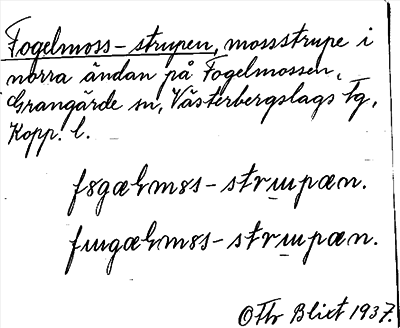 Fogelmoss-strupen, mossstrupe i
norra ändan på Fogelmossen,
Grangärde sn, Västerbergslags tg,
Kopp. l.
føgæɬmøs-strɯpæn.
fɯgæɬmøs-strɯpæn.
Blixt 1937.